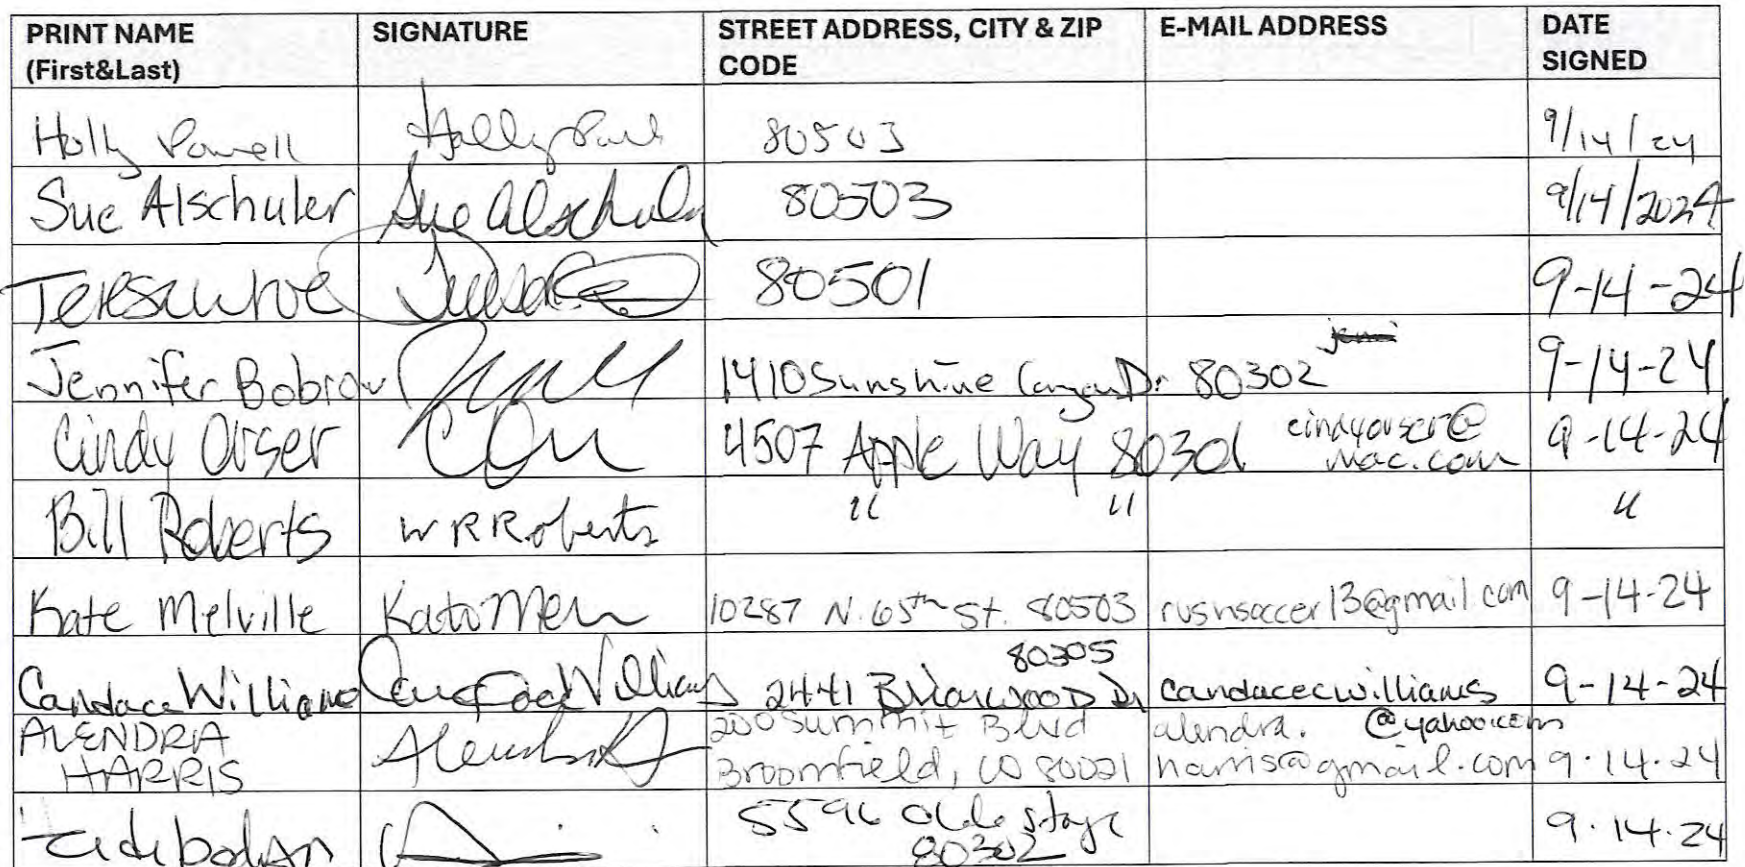 PRINT NAME (First&Last) SIGNATURE STREET ADDRESS, CITY & ZIP CODE E-MAIL ADDRESS DATE SIGNED
Holly Powell Holly 80503 9/14/24
Sue Alschuler Sue Alschuler 80503 9/14/2024
Teresa 80501 9-14-24
Jennifer Bobrow 1410 Sunshine Canyon Dr 80302 9-14-24
Cindy Orser 4507 Apple Way 80301 cindyorser@mac.com 9-14-24
Bill Roberts W R Roberts " " "
Kate Melville 10287 N. 65th St. 80503 rushsoccer13@gmail com 9-14-24
Candace Williams Candace Williams 2441 Briarwood Dr 80305 candacecwilliams@yahoo.com 9-14-24
ALENDRA HARRIS 200 Summit Blvd Broomfield, CO 80021 alendra.harris@gmail.com 9.14.24
Olde Stage 80302 9.14.24